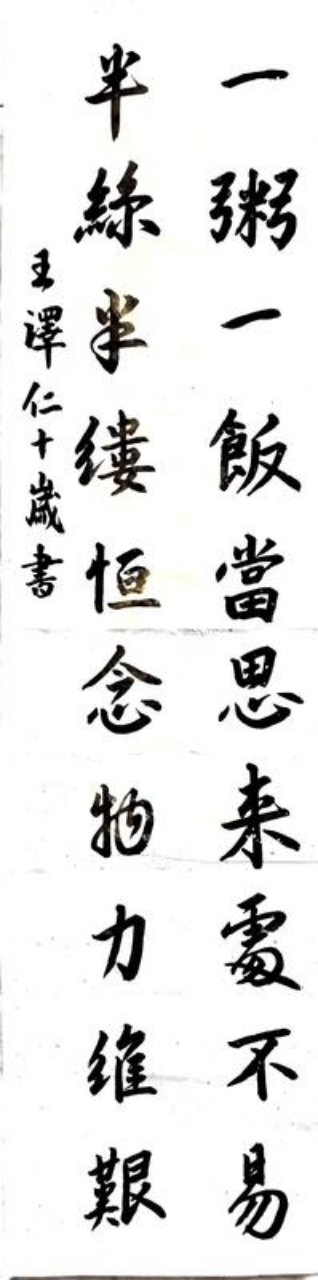 一粥一飯當思来處不易
半絲半縷恒念物力維艱
王澤仁十歲書